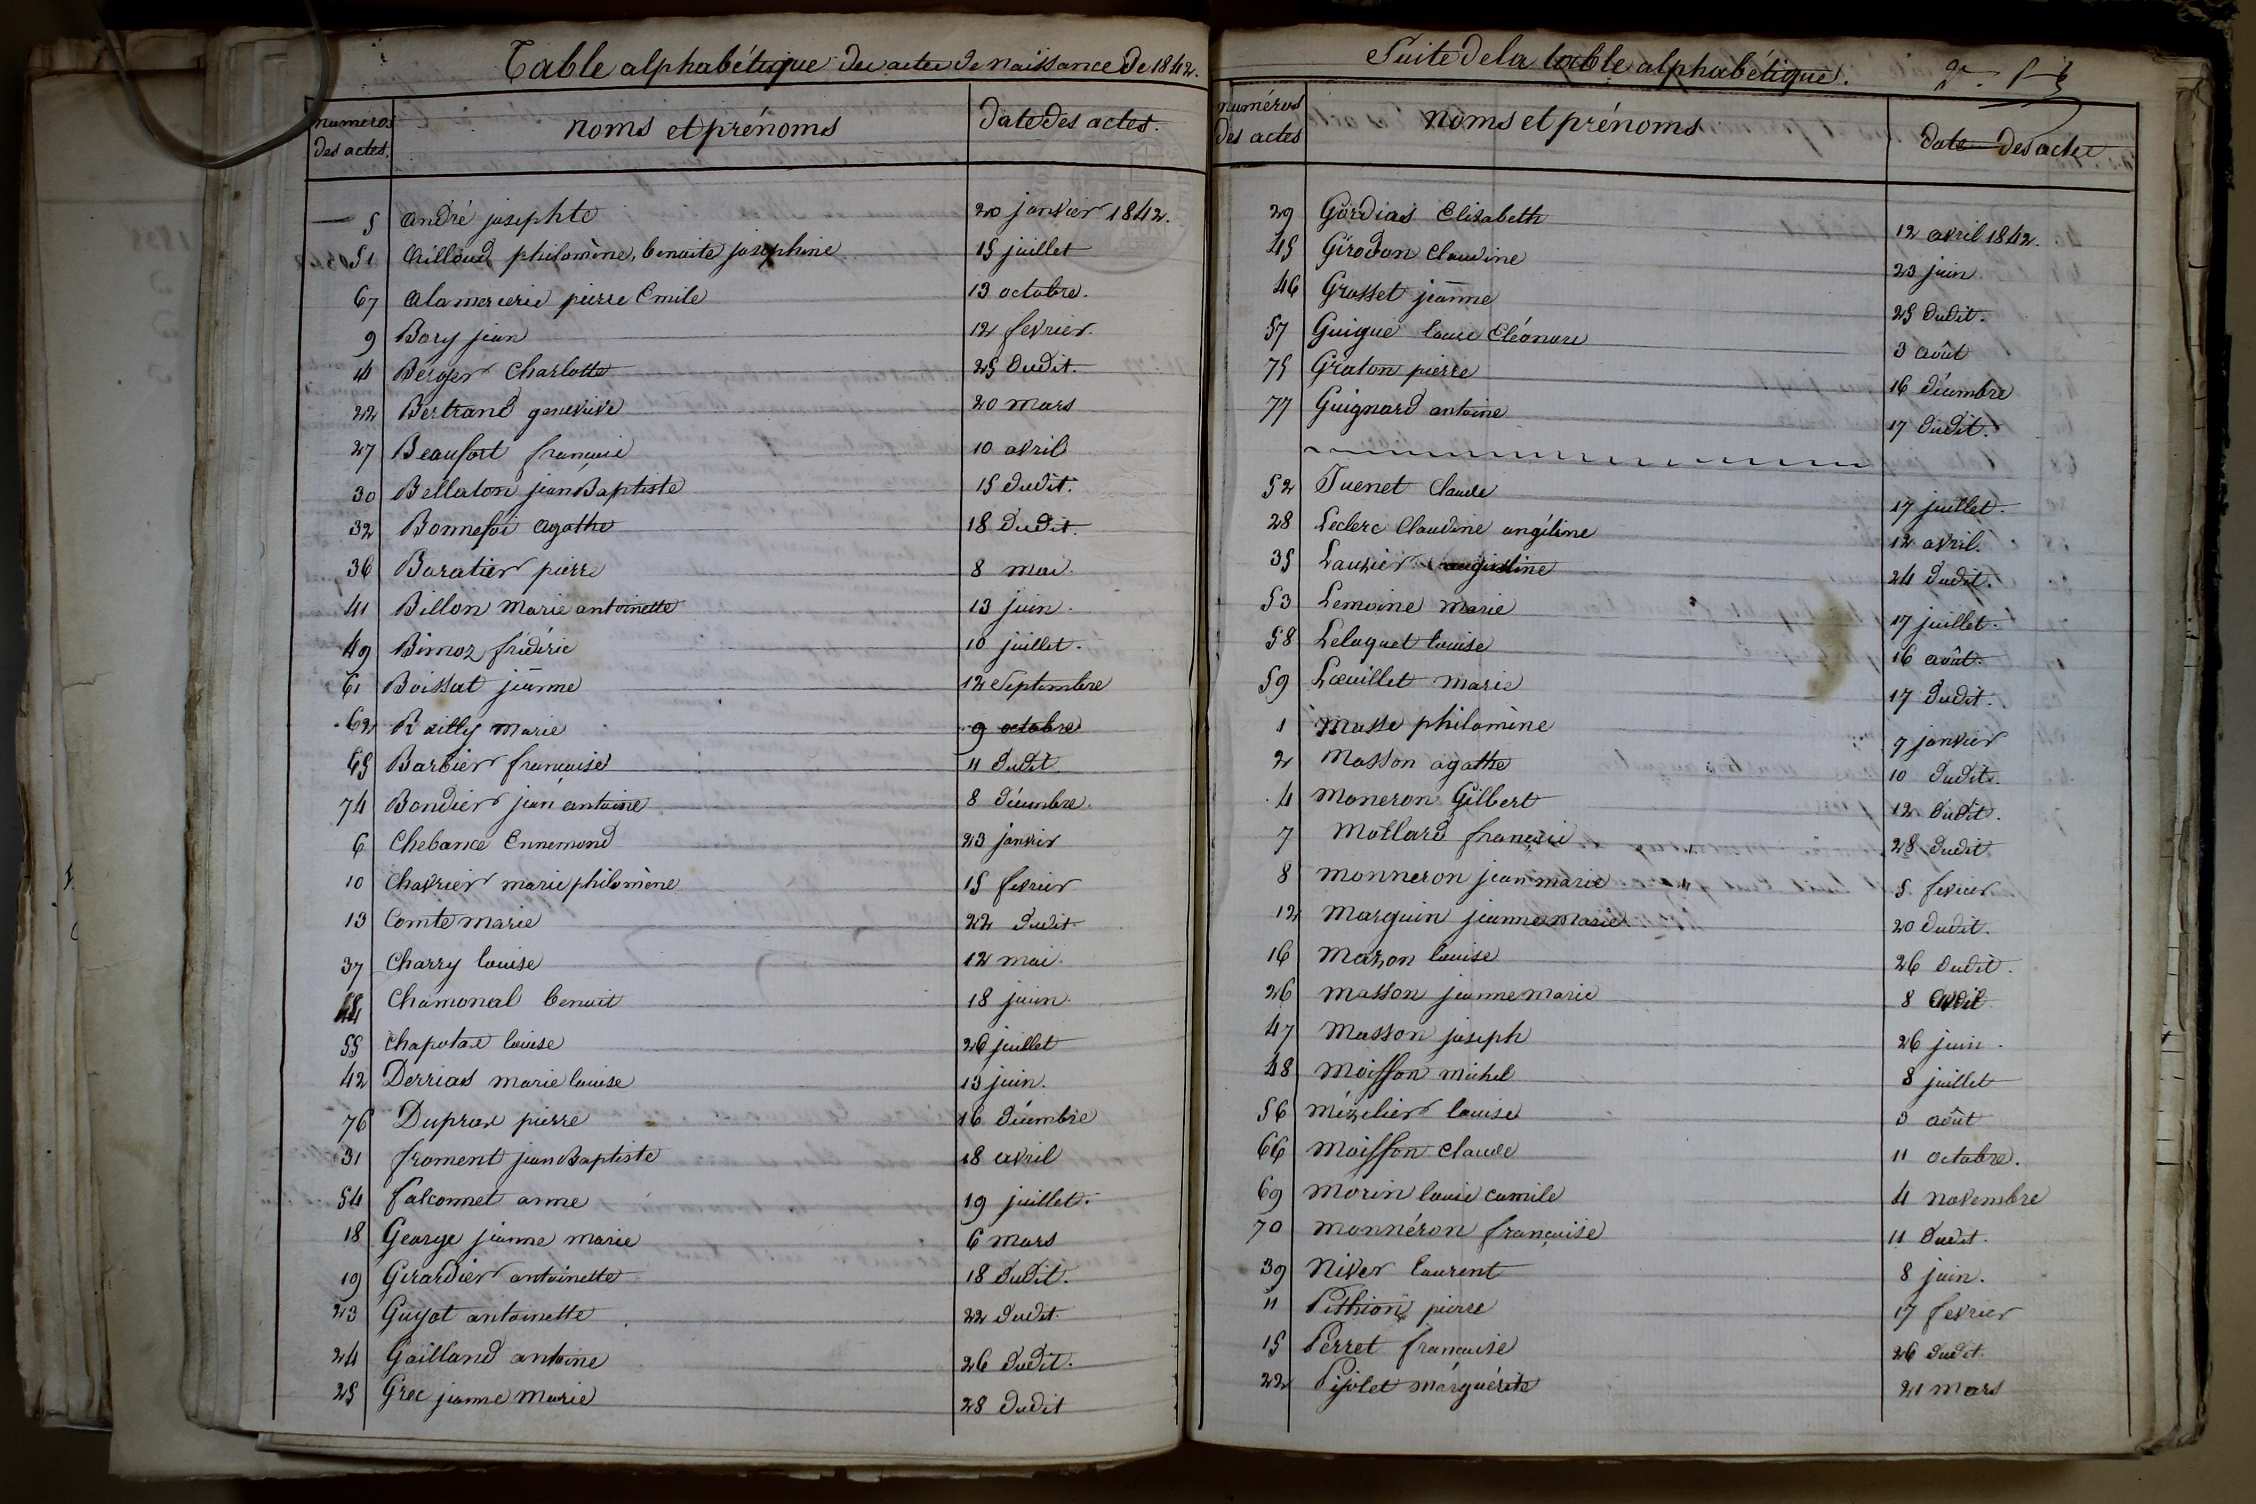 Table alphabétique des actes de naissance de 1842.
numéros des actes. noms et prénoms date des actes.
5 andré josephte 20 janvier 1842.
51 Ailloud philomène, benoite josephine 15 juillet
67 alamercerie pierre Emile 13 octobre.
9 Bory jean 12 fevrier.
14 Berger Charlotte 25 dudit.
22 Bertrand genevieve 20 mars
27 Beaufort françois 10 avril
30 Bellaton jean Baptiste 15 dudit.
32 Bonnefoi Agathe 18 dudit.
36 Baratier pierre 8 mai.
41 Billon Marie antoinette 13 juin.
49 Bimoz frédéric 10 juillet.
61 Boissat jeanne 12 Septembre
62 Bailly Marie 9 octobre
65 Barbier francoise 11 dudit
74 Bondier jean antoine 8 décembre.
6 Chebance Ennemond 23 janvier
10 Chavrier marie philomène 15 fevrier
13 Comte marie 22 dudit.
37 Charry louise 12 mai.
44 Chamonal benoit 18 juin.
55 Chapotat louise 26 juillet
42 Derrias marie louise 13 juin.
76 Duprat pierre 16 décembre
31 froment jean Baptiste 18 avril
54 falconnet anne 19 juillet.
18 George jeanne marie 6 mars
19 Girardier antoinette 18 dudit.
23 Guyot antoinette 22 dudit.
24 Gailland antoine 26 dudit.
25 Grec jeanne Marie 28 dudit
Suite de la table alphabétique.
numéros des actes noms et prénoms date des actes
29 Gordias Elisabeth 12 avril 1842.
45 Girodon Claudine 23 juin
46 Grosset jeanne 25 dudit.
57 Guigue louise Eléonore 3 août
75 Graton pierre 16 décembre
77 Guignard antoine 17 dudit.
52 Juenet Claude 17 juillet.
28 Leclerc Claudine angéline 12 avril.
35 Lauzier augustine 24 dudit.
53 Lemoine marie 17 juillet.
58 Lelaquet louise 16 août.
59 Lœuillet marie 17 dudit.
1 Masse philomène 7 janvier
2 Masson agathe 10 dudit.
4 Moneron Gilbert 12 dudit.
7 Mollard françois 28 dudit
8 Monneron jean marie 5 fevrier
12 Marguin jeanne Marie 20 dudit.
16 Mazon louise 26 dudit.
26 Masson jeanne marie 8 avril
47 Masson joseph 26 juin.
48 Moisson michel 8 juillet
56 Mézelier louise 3 août
66 Moisson Claude 11 octobre.
69 Morin louis camile 4 novembre
70 Monnéron françoise 11 dudit.
39 Niver laurent 8 juin.
11 Pithion pierre 17 fevrier
15 Perret francoise 26 dudit.
22 Pijolet márguérite 21 mars